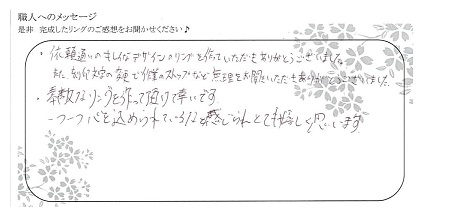 職人へのメッセージ
是非 完成したリングのご感想をお聞かせください♪
・依頼通りのキレイなデザインのリングを作っていただきありがとうございました。
また、刻印文字の変更で作業のストップなど無理をお聞きいただきありがとうございました。
・素敵なリングを作って頂けて幸いです
一つ一つ心を込められているなと感じられとても嬉しく思います